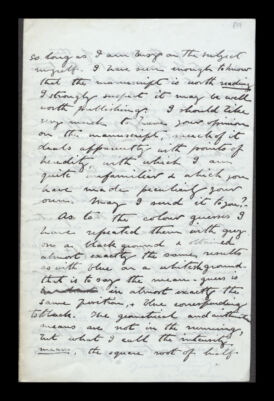 so long as I am busy on the subject
myself. I have seen enough to know
that the manuscript is worth reading
I strongly suspect it may be well
worth publishing. I should like
very much to have your opinion
on the manuscript, much of it
deals apparently with points of
heredity, with which I am
quite unfamiliar & which you
have made peculiarly your
own. May I send it to you?
As to the colour guesses I
have repeated them with grey
on a black ground & obtained
almost exactly the same results
as with blue on a whitish ground
that is to say the mean-guess is
in almost exactly the
same position, & the corresponding
to black. The geometrical and arithmetical
means are not in the running,
but what I call the intensity
means, the square root of half-